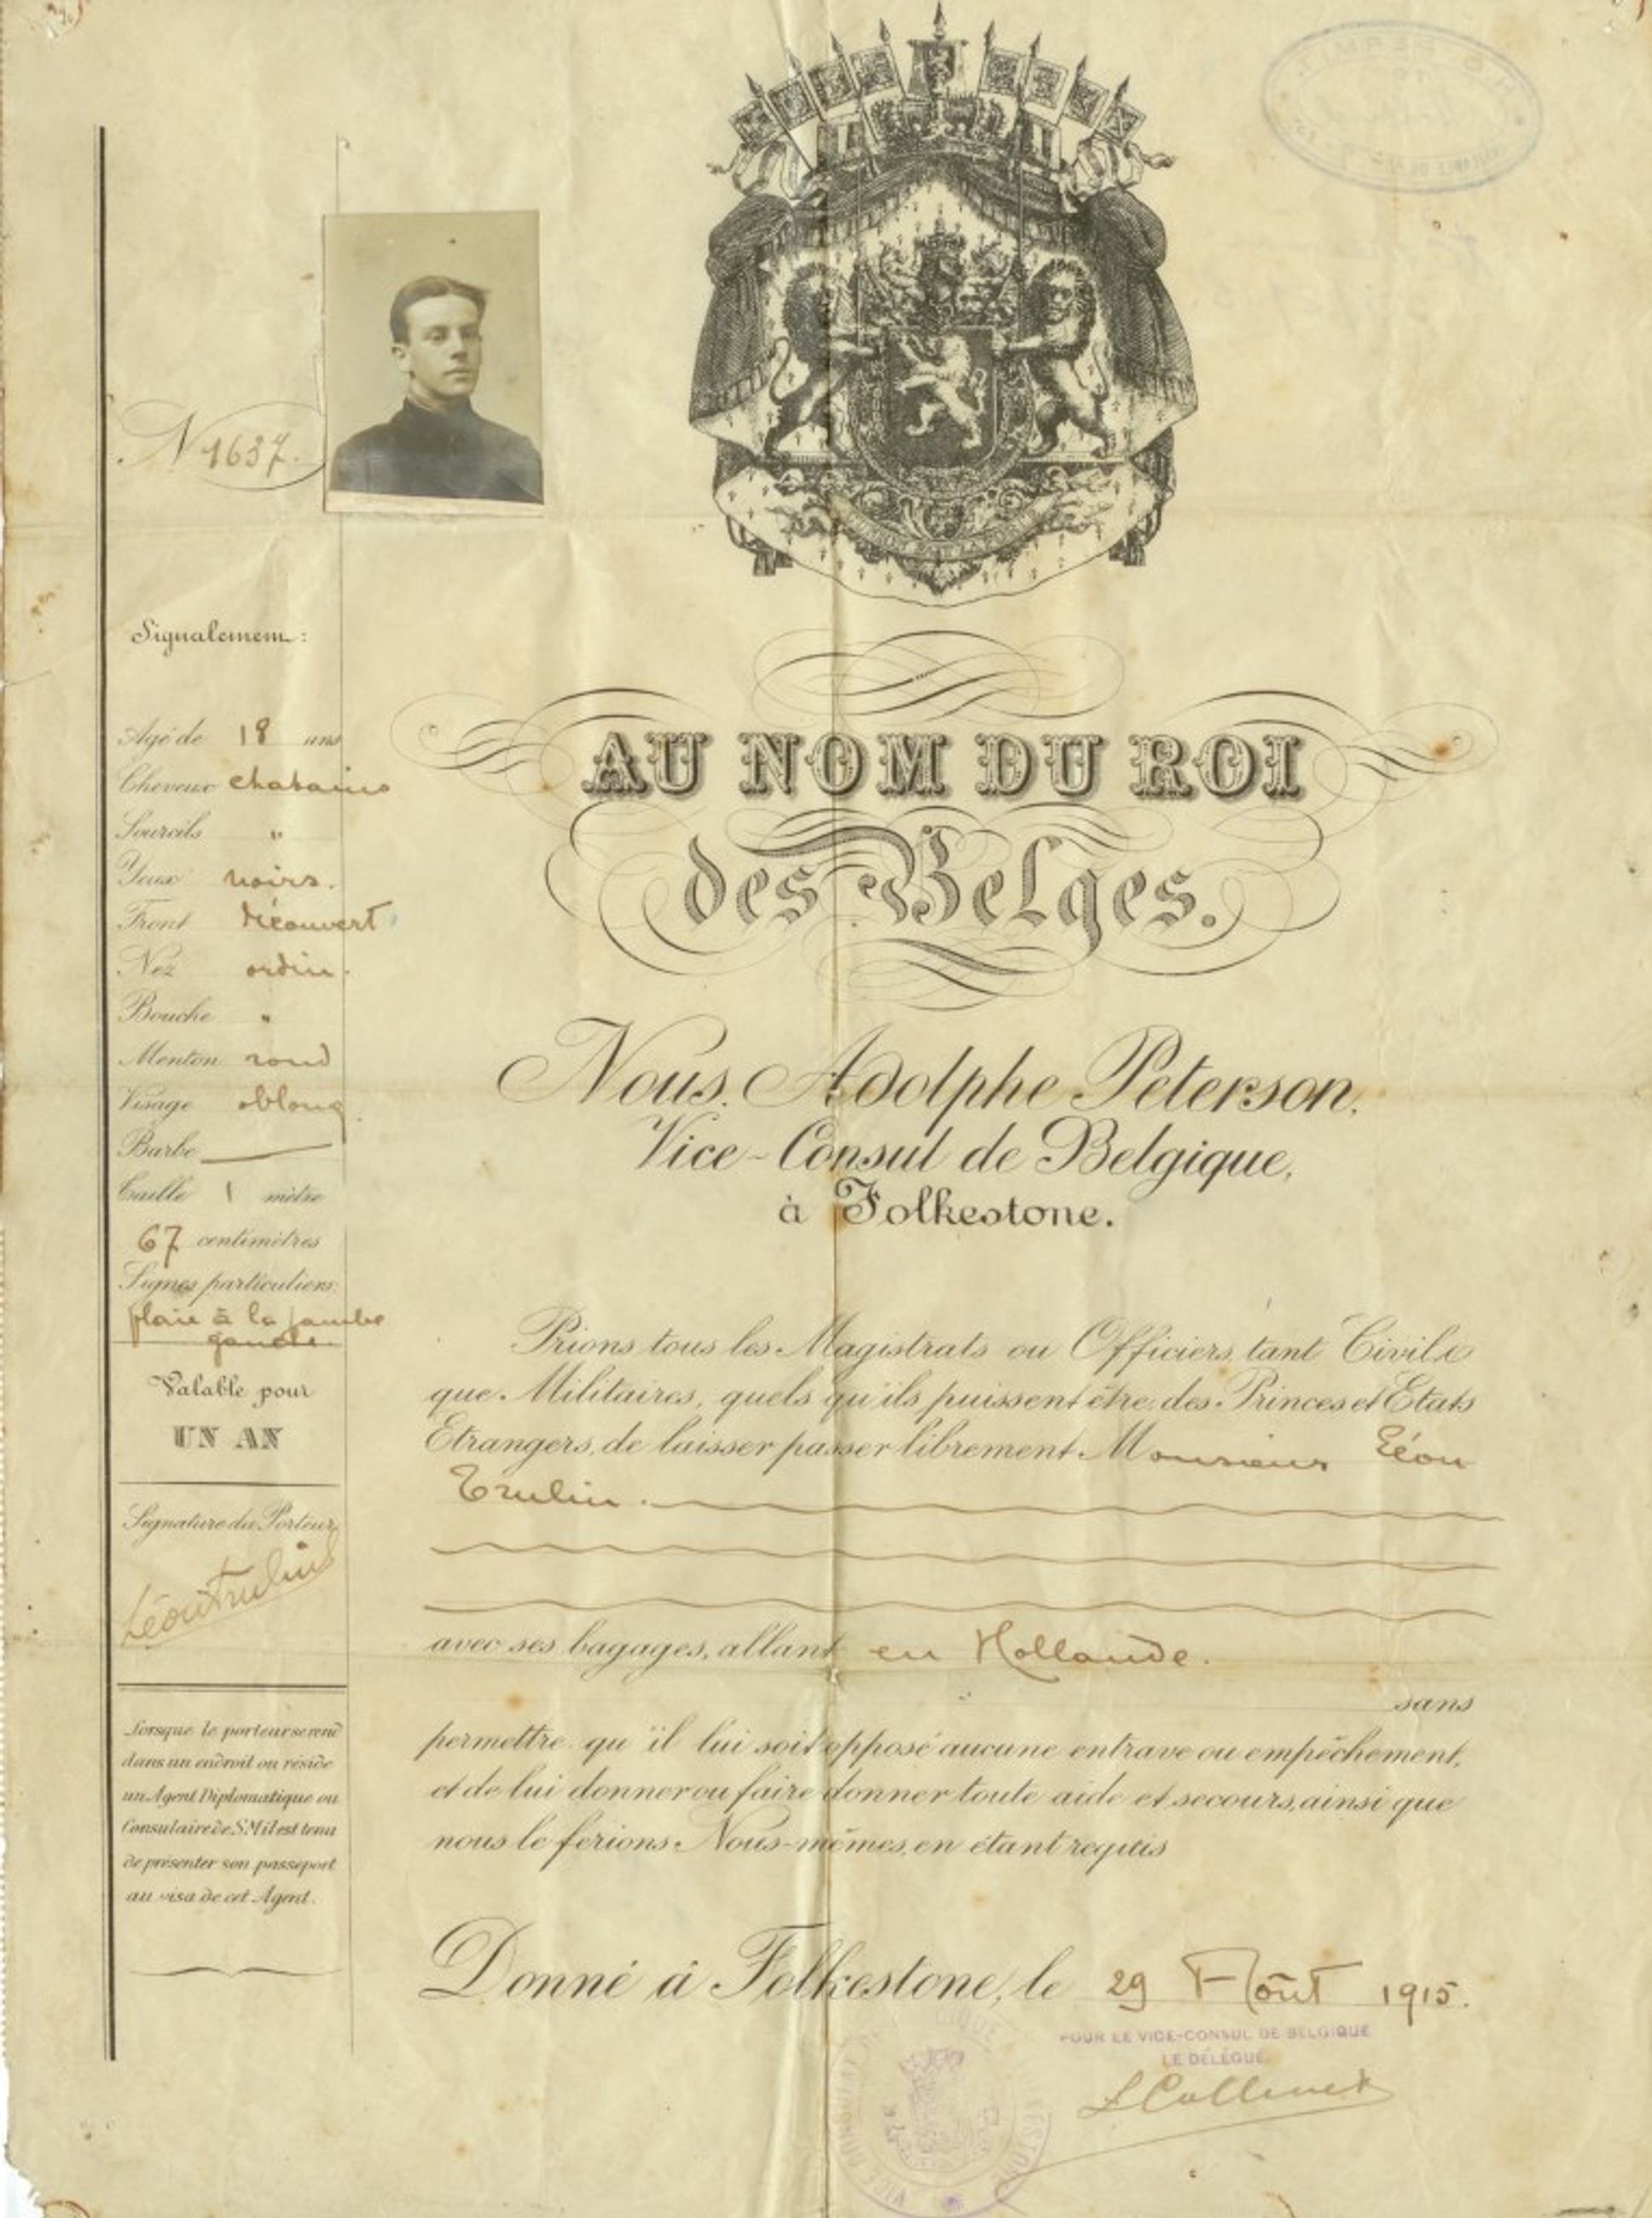 N 1637.
Signalement:
Agé de 18 ans
Cheveux chatains
Sourcils "
Yeux noirs.
Front découvert
Nez ordin.
Bouche "
Menton rond
Visage oblong.
Barbe —
Taille 1 mètre
67 centimètres
Signes particuliers
plaie à la jambe
gauche
Valable pour
UN AN
Signature du Porteur
Léon Trulin
Lorsque le porteur se rend
dans un endroit ou réside
un Agent Diplomatique ou
Consulaire de S M il est tenu
de présenter son passeport
au visa de cet Agent.
AU NOM DU ROI
des Belges.
Nous, Adolphe Peterson,
Vice-Consul de Belgique,
à Folkestone.
Prions tous les Magistrats ou Officiers, tant Civils
que Militaires, quels qu'ils puissent être, des Princes et Etats
Etrangers, de laisser passer librement Monsieur Léon
Trulin.
avec ses bagages, allant en Hollande.
sans
permettre qu'il lui soit opposé aucune entrave ou empêchement,
et de lui donner ou faire donner toute aide et secours, ainsi que
nous le ferions Nous-mêmes, en étant requis
Donné à Folkestone, le 29 Août 1915.
POUR LE VICE-CONSUL DE BELGIQUE
LE DÉLÉGUÉ